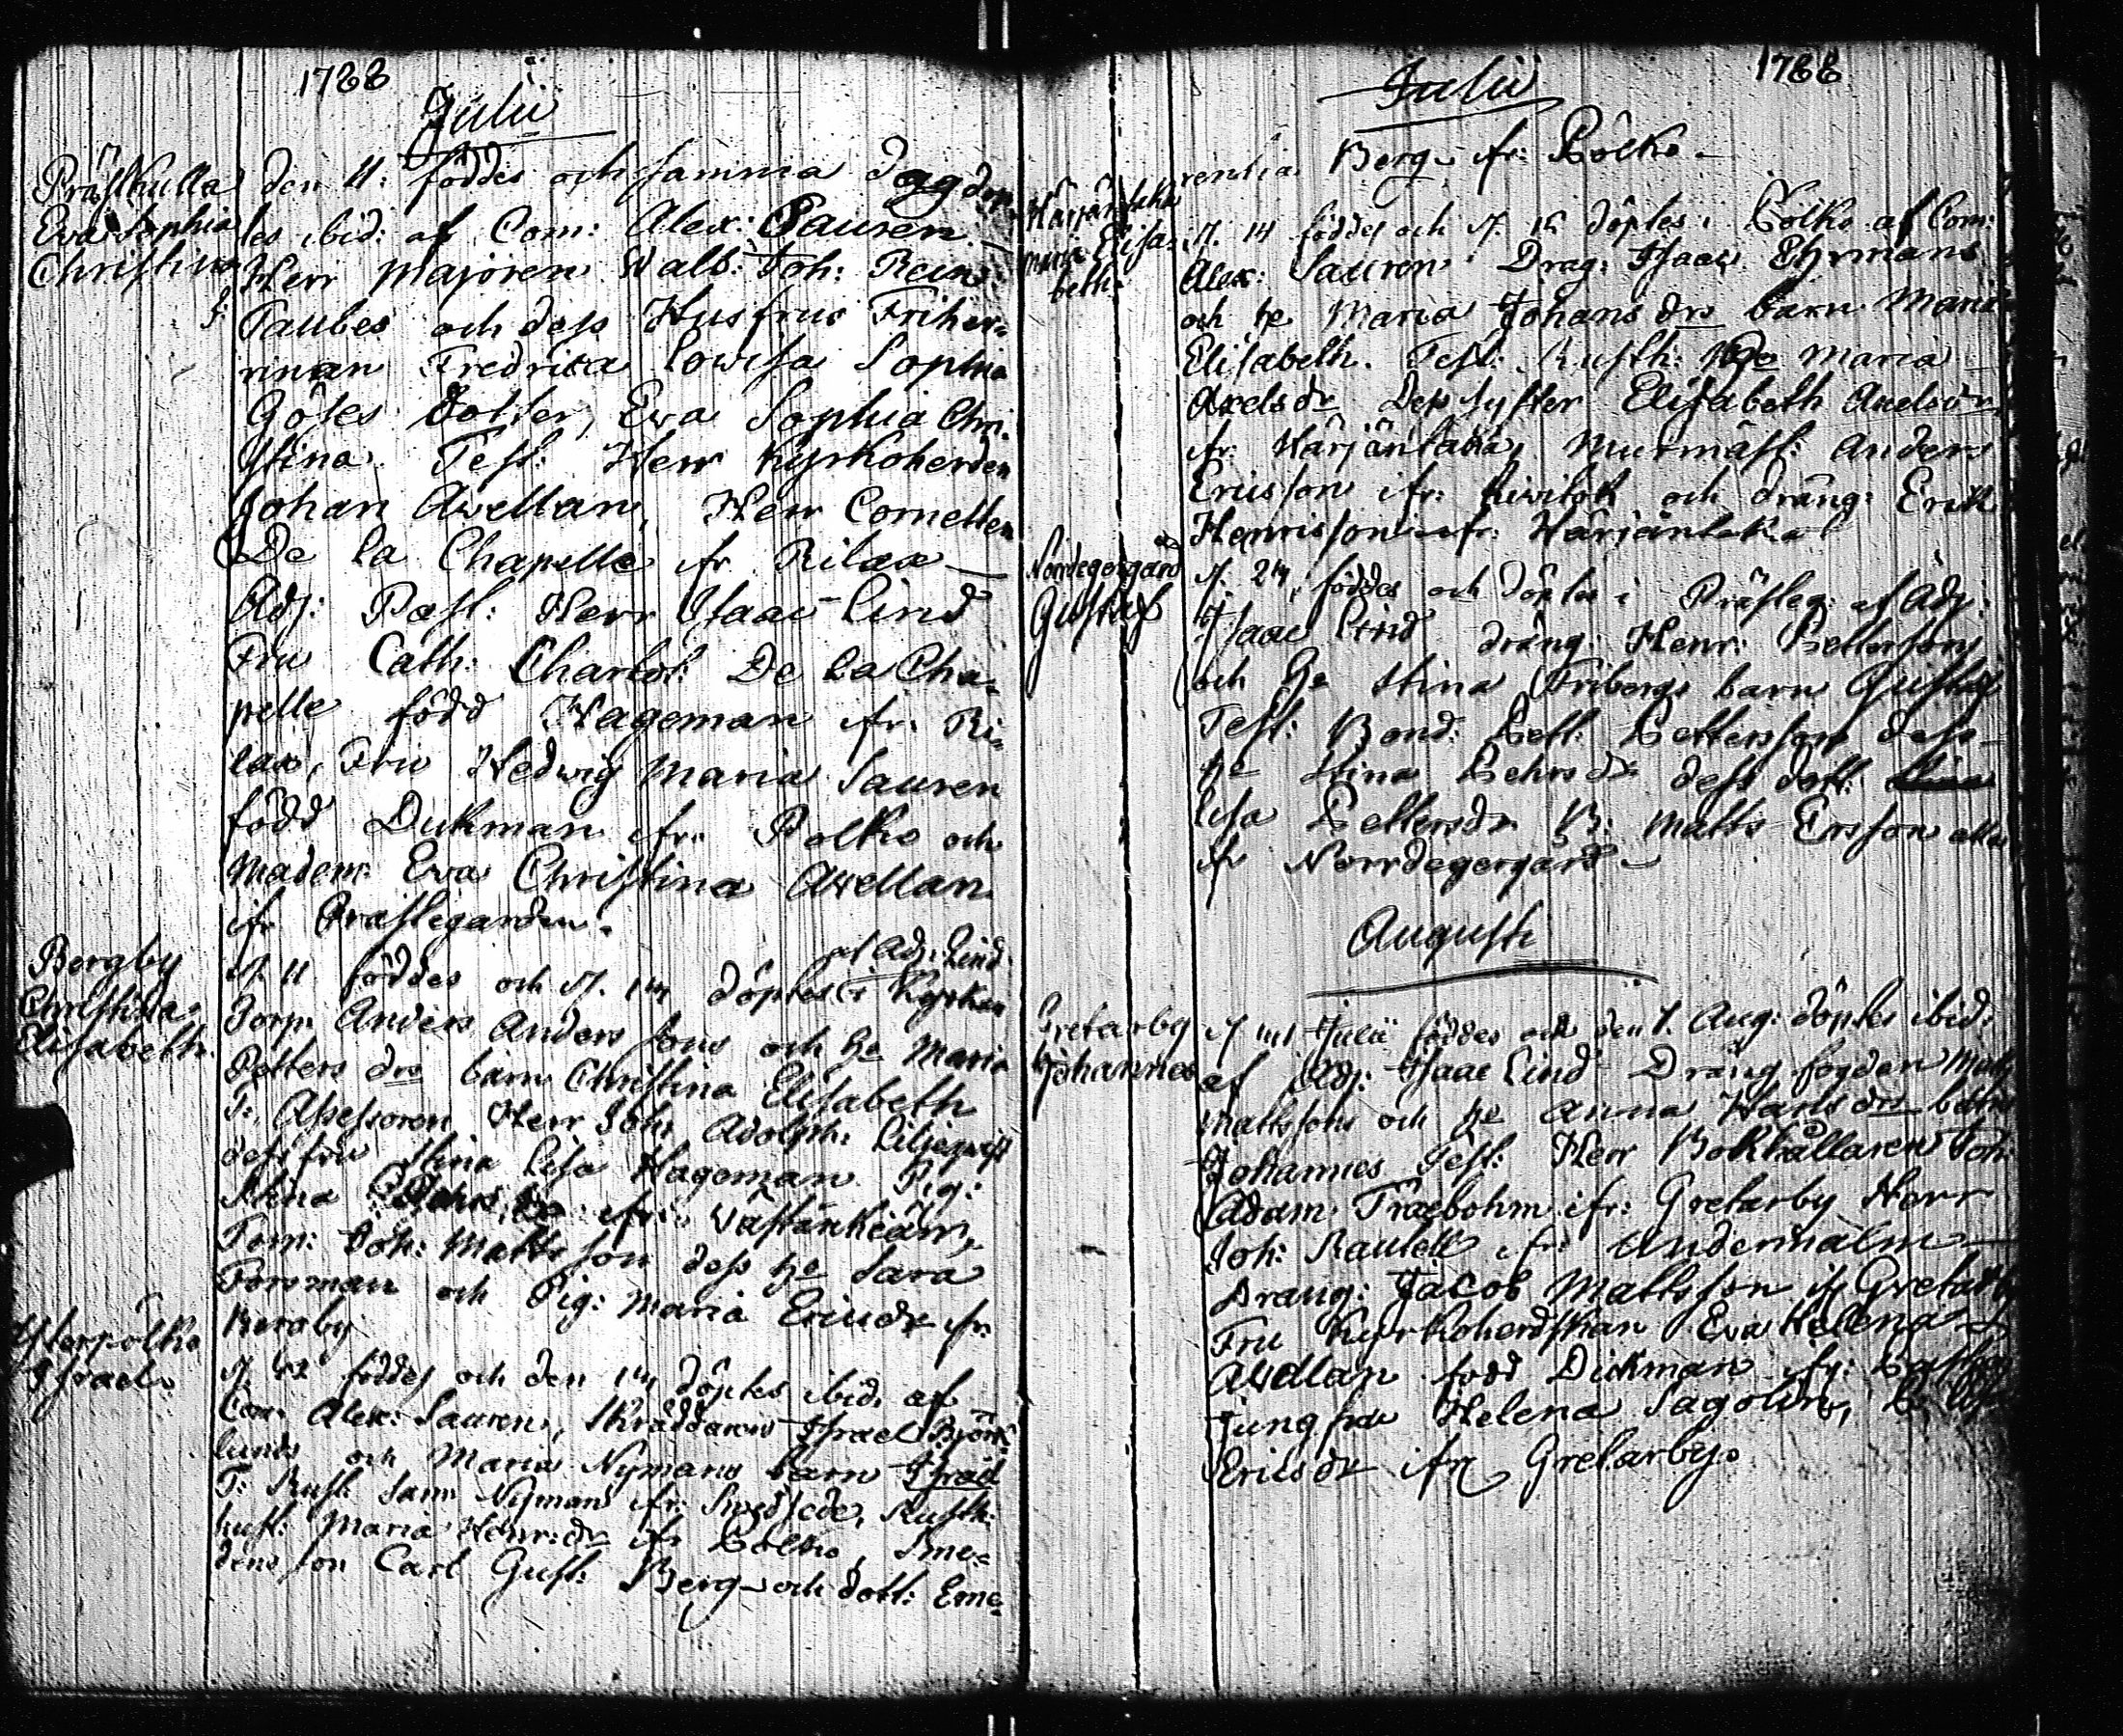 1788
Julii
Prästkulla
Eva Sophia
Christina
den 11: föddes och samma dag döp-
tes ibid: af Com: Alex: Sauren
Herr Majoren Walb: Joh: Rein:
Taubes och dess Husfrus Friher-
rinnan Fredrica Lowisa Sophia
Götes dotter, Eva Sophia Chri-
stina. Test: Herr Kyrkoherden
Johan Avellan, Herr Cornetten
De la Chapelle ifr Rilax
Adj: Past: Herr Isaac Lind
Fru Cath: Charlot: De la Cha-
pelle född Hageman ifr: Ri-
lax, Fru Hedwig Maria Sauren
född Dukman ifr: Polko och
Madem: Eva Christina Avellan
ifr Prästegarden.
Bergby
Christina
Elisabeth.
af Adj: Lind
d. 11 föddes och d. 14 döptes i Kyrkan
Torp: Anders Anders sons och he Maria
Petters drs barn Christina Elisabeth
T: Assessoren Herr Joh: Adolph: Liljeqvist
dess fru Stina Lisa Hageman Pig:
Stina ifr: Västankiärr,
Tom: Joh: Matts son dess he Sara
Forsman och Pig: Maria Ericsdr ifr:
Bergby
Ysterpolko
Israel.
d. 12 föddes och den 14 döptes ibid: af
Com: Alex: Sauren, Skräddaren Israel Björk-
lunds och Maria Nymans barn Israel
T: Rust: Sam: Nyman ifr: Smedsede, Rusth:
hust: Maria Henr: dr ifr Polko, Sme-
dens son Carl Gust: Berg och dott: Eme-
Julii
1788
rentia Berg ifr: Polko
Härjäntaka
Maria Elisa-
beth
d. 14 föddes och d. 15 döptes i Polko af Com:
Alex: Sauren Drag: Isaac Ehrmans
och he Maria Johans drs barn Maria
Elisabeth. Test: Rusth: Maria
Axelsdr Dess syster Elisabeth Axelsdr
ifr: Härjäntaka, Murmäst: Anders
Ericsson ifr: och dräng: Erik
Henrisson ifr: Härjäntaka
Norrdegergård
Gustaf
d. 24, föddes och döptes i Prästeg: af Adj:
Isaac Lind dräng: Henr: Pettersons
och he Stina Fribergs barn Gustaf
Test: Bond: Pett: Pettersson dess
he Stina Pehrsdr dess dott:
Lisa Pettersdr B: Matts Ersson alla
ifr Norrdegergård
Augusti
Gretarby
Johannes
d Julii föddes och den 1. Aug: döptes ibid:
af Adj: Isaac Lind Dräng fogden Matts
Mattssons och he Anna Hans drs barn
Johannes Test: Herr Bokhållaren Joh:
Adam Träbohm ifr: Gretarby Herr
Joh: ifr:
Dräng: Jacob Mattsson ifr Gretarby
Fru Kyrkoherdskan Eva Helena
Avellan född Dickman ifr:
Jungfru Helena Sagolin,
Ericsdr ifr Gretarby.